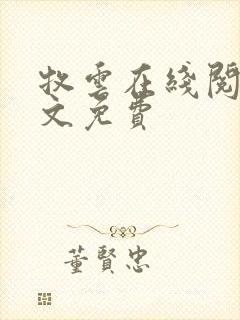 牧雲在綫閱
文免費
董賢忠